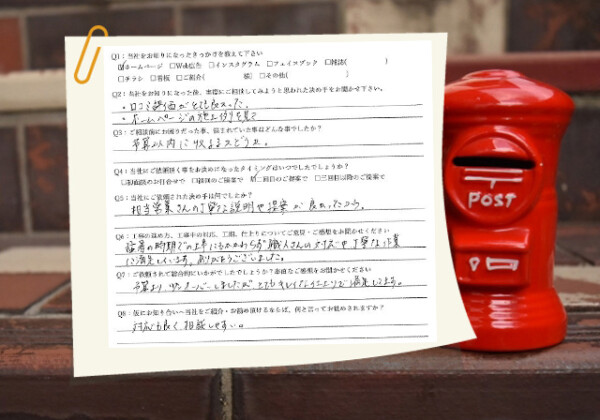 Q1：当社をお知りになったきっかけを教えて下さい
☑ホームページ □Web広告 □インスタグラム □フェイスブック □雑誌( )
□チラシ □看板 □ご紹介( 様 □その他( )
Q2：当社をお知りになった後、実際にご相談してみようと思われた決め手をお聞かせ下さい。
・口コミ評価がとても良かった。
・ホームページの施工例を見て
Q3：ご相談前にお困りだった事、悩まれていた事はどんな事でしたか？
予算以内に収まるかどうか。
Q4：当社にご依頼頂く事をお決めになったタイミングはいつでしたでしょうか？
□初面談のお打合せで □初回のご提案で ☑二回目のご提案で □三回目以降のご提案で
Q5：当社にご依頼された決め手は何でしたか？
担当営業さんの丁寧な説明や提案が良かったから。
Q6：工事の進め方、工事中の対応、工期、仕上りについてご感想をお聞かせください
猛暑の時期での工事にもかかわらず職人さんの対応や丁寧な作業
に満足しています。ありがとうございました。
Q7：ご依頼されて総合的にいかがでしたでしょうか？率直なご感想をお聞かせください
予算より少しオーバーしましたが、とてもキレイな仕上りで満足してます。
Q8：仮にお知り合いへ当社をご紹介・お勧め頂けるならば、何と言ってお勧めされますか？
対応も良く、相談しやすい。
POST